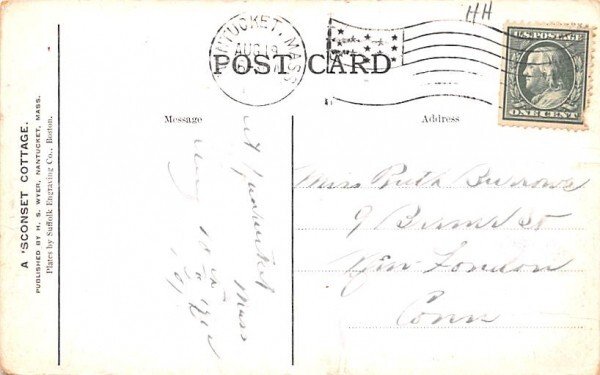 HH
NANTUCKET, MASS.
AUG 19
U.S. POSTAGE
ONE CENT
POST CARD
Message
Address
at Nantucket
Mass
Miss Ruth Burrows
9 St
New London
Conn
A 'SCONSET COTTAGE.
PUBLISHED BY H. S. WYER, NANTUCKET, MASS.
Plates by Suffolk Engraving Co., Boston.